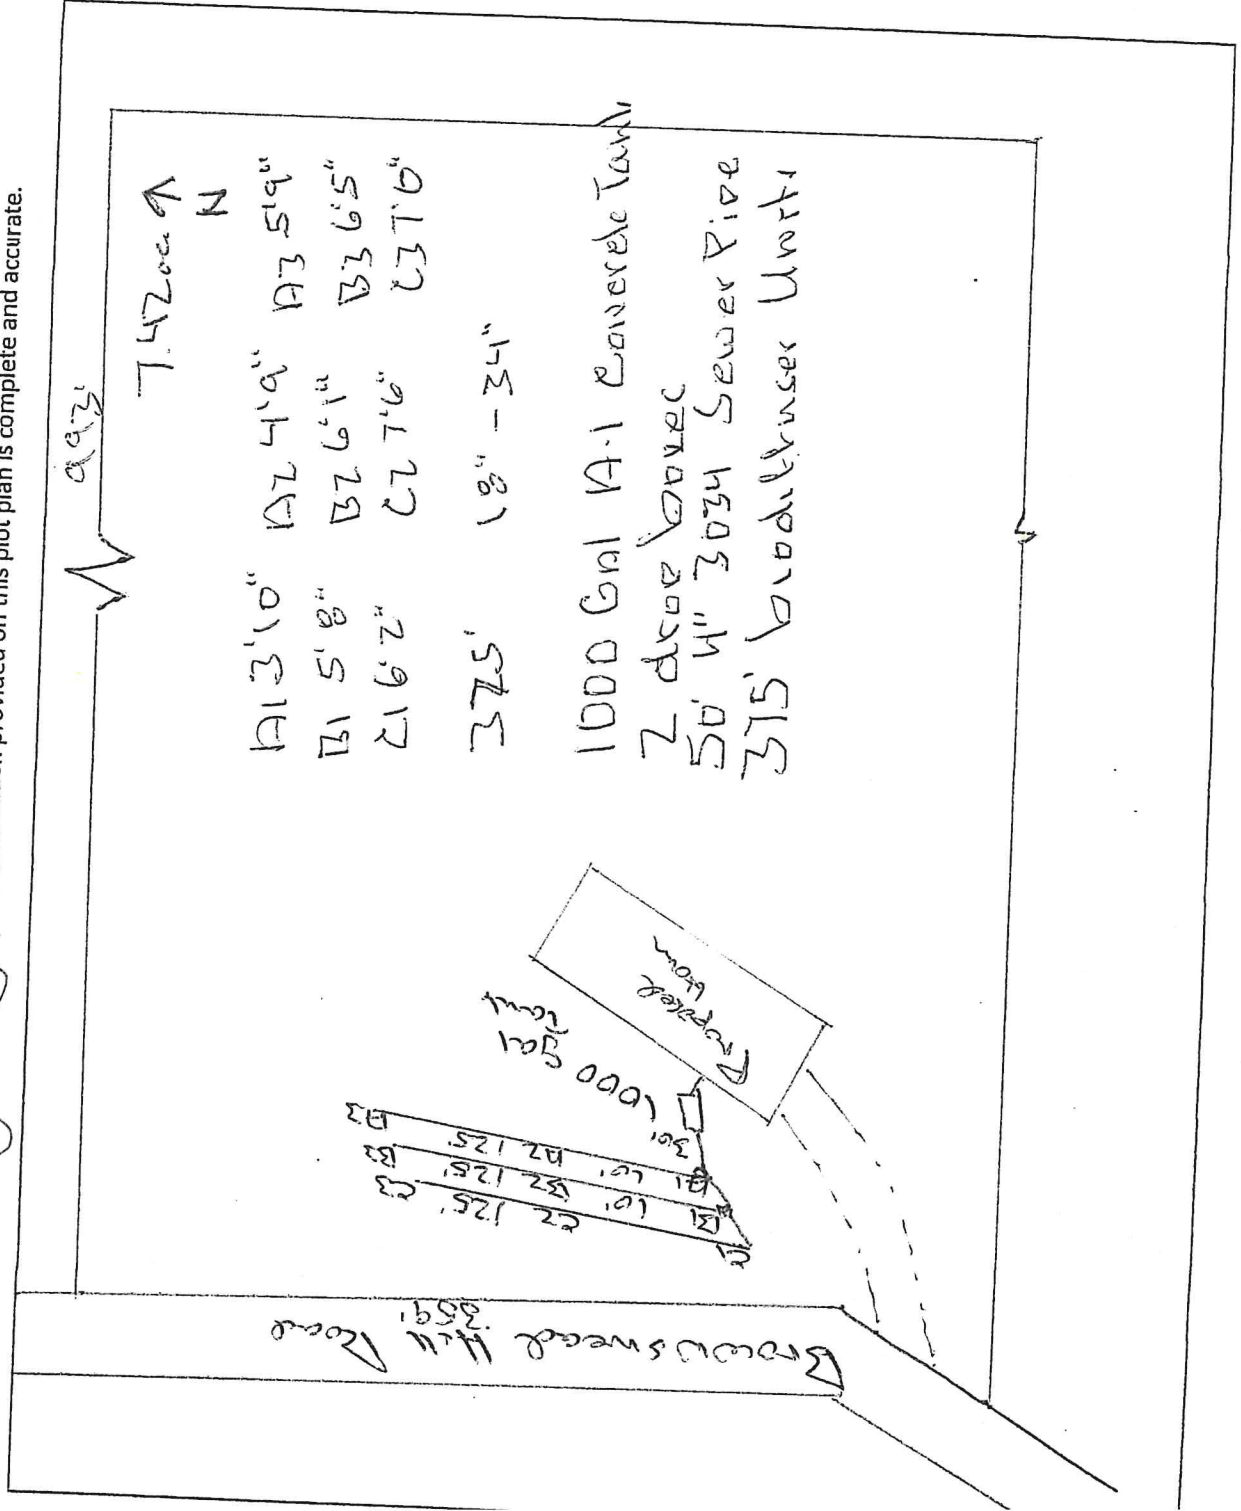 provided on this plot plan is complete and accurate.
993'
7.42 ac
N
A1 3'10" A2 4'9" A3 5'9"
B1 5'8" B2 6'1" B3 6'5"
C1 6'2" C2 7'6" C3 7'6"
375' 18" - 34"
1000 Gal A-1 Concrete Tank
2 drop boxes
50' 4" 3034 Sewer Pipe
375' biodiffuser Units
Proposed
Hom
1000 gal
tank
30'
A1 10' A2 125' A3
B1 10' B2 125' B3
C1 C2 125' C3
Hill Road
359'